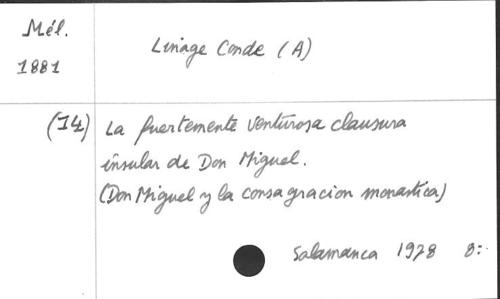 Mél.
1881
Linage Conde (A)
(14) La fuertemente venturosa clausura
insular de Don Miguel.
(Don Miguel y la consagracion monastica)
Salamanca 1978 8: